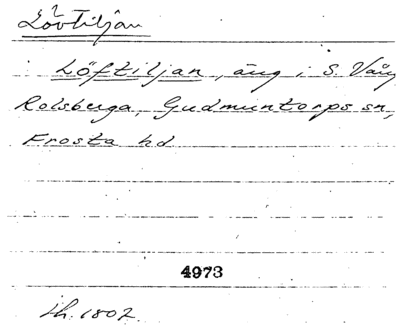 Lövtiljan
Löftiljan, äng i S. Vång
Rolsberga, Gudmuntorps sn,
Frosta hd
4973
Lh. 1802.